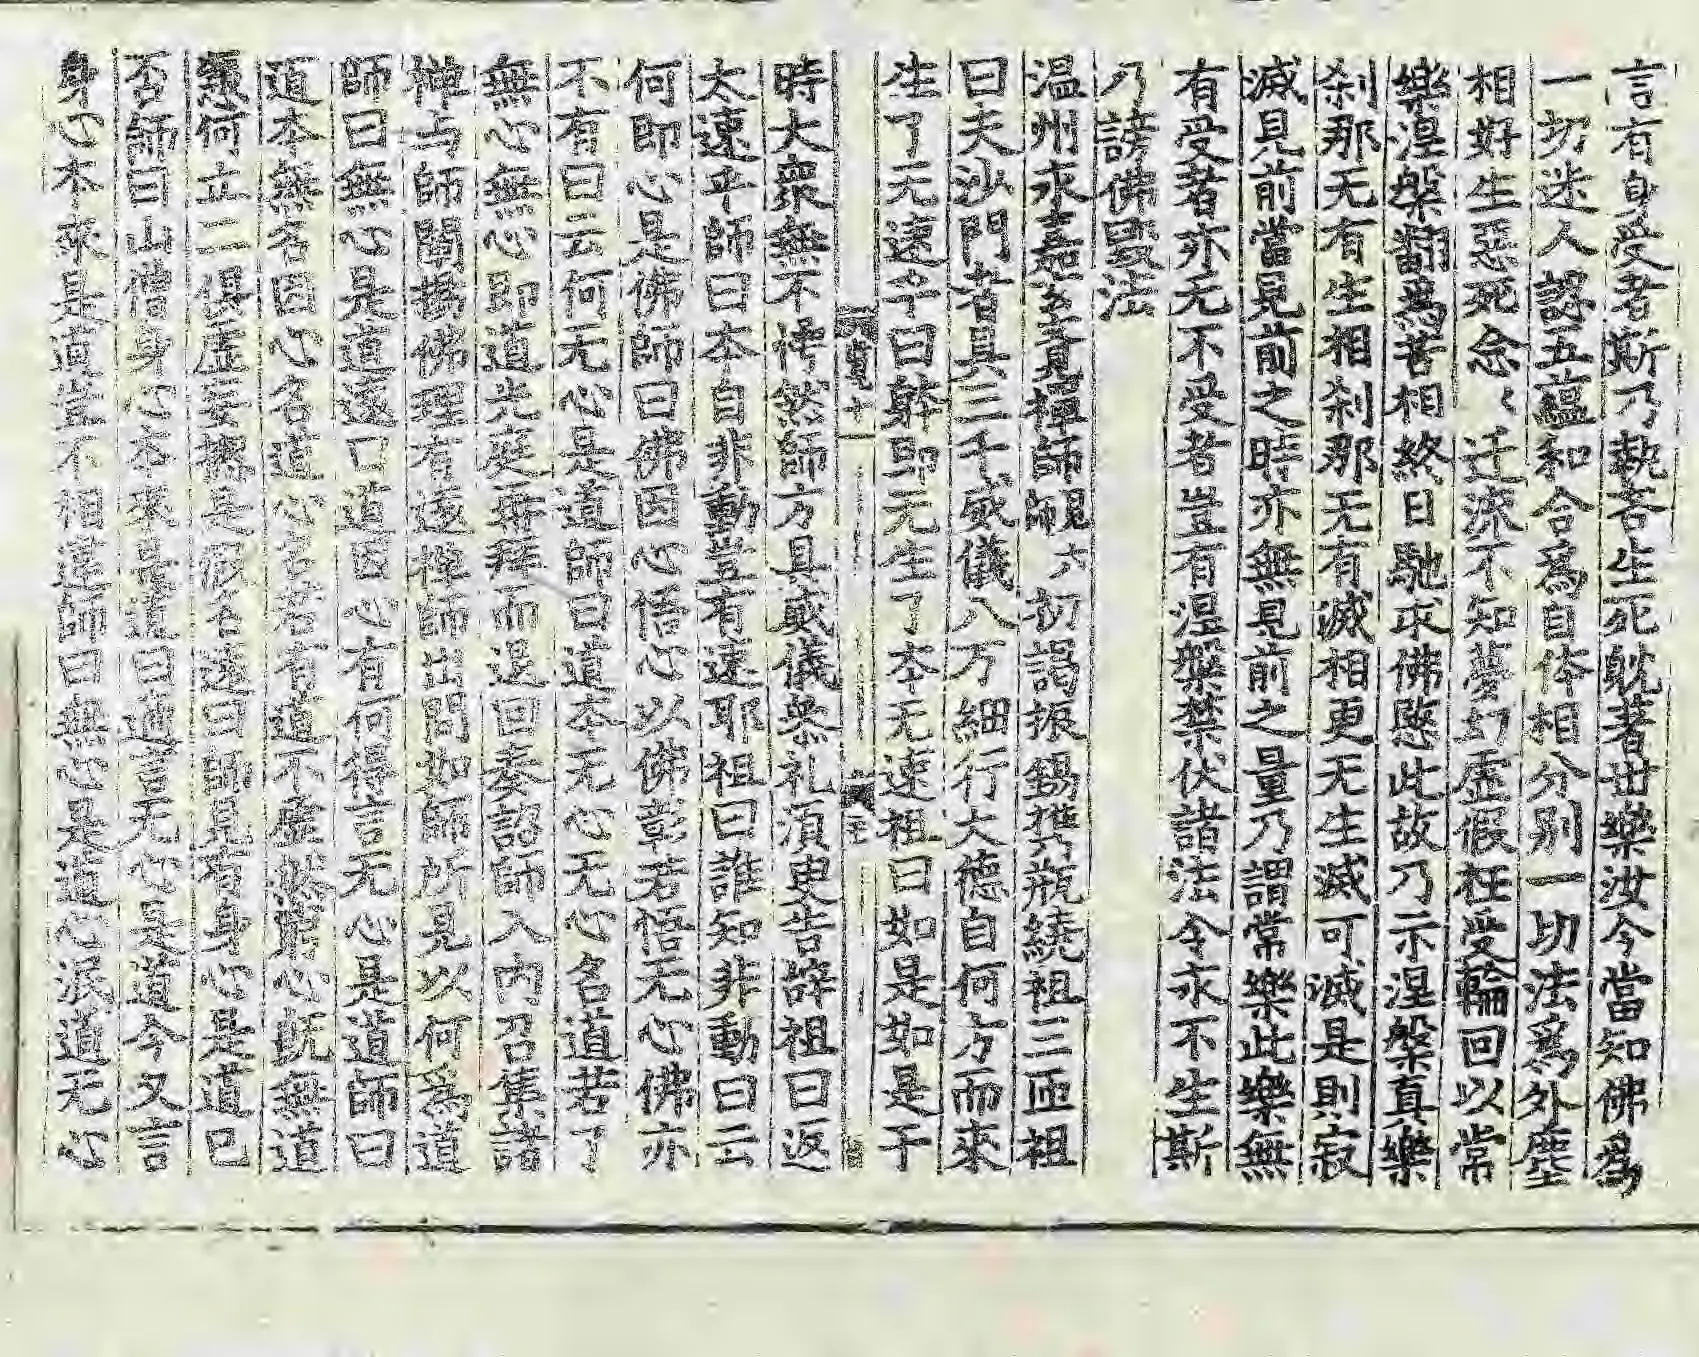 言有身受者斯乃執吝生死躭著世樂汝今當知佛爲
一切迷人認五蘊和合爲自体相分别一切法爲外塵
相好生惡死念〻迁流不知夢幻虛假枉受輪回以常
樂涅槃翻爲苦相終日馳求佛愍此故乃示涅槃真樂
刹那无有生相刹那无有滅相更无生滅可滅是則寂
滅見前當見前之時亦無見前之量乃謂常樂此樂無
有受者亦无不受者豈有涅槃禁伏諸法令永不生斯
乃謗佛毁法
温州永嘉玄覺禪師覿六初謁振錫携瓶繞祖三匝祖
曰夫沙門者具三千威儀八万細行大德自何方而來
生了无速乎曰躰即无生了本无速祖曰如是如是于
時大衆無不愕然師方具威儀叅礼湏臾告辞祖曰返
太速乎師曰本自非動豈有速耶祖曰誰知非動曰云
何即心是佛師曰佛因心悟心以佛彰若悟无心佛亦
不有曰云何无心是道師曰道本无心无心名道若了
無心無心即道光庭再拜而退回奏詔師入内召集諸
禅与師闡揚佛理有遠禅師出問如師所見以何爲道
師曰無心是道遠曰道因心有何得言无心是道師曰
道本無名因心名道心名若有道不虛然窮心既無道
憑何立二俱虛妄揔是假名遠曰師見有身心是道已
否師曰山僧身心本來是道曰適言无心是道今又言
身心本來是道豈不相違師曰無心是道心泯道无心